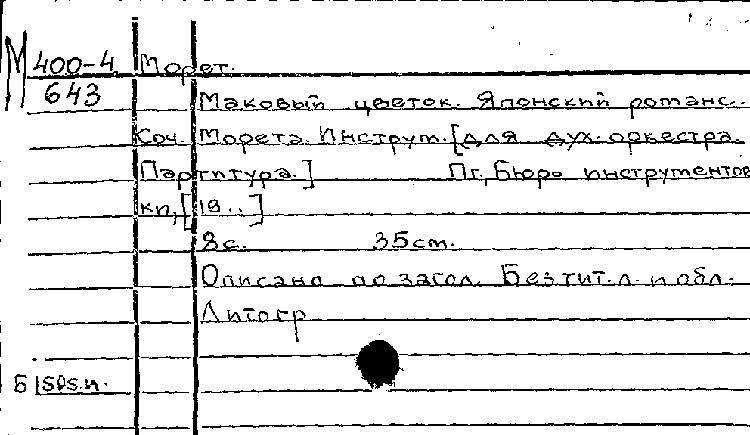 М 400-4 Морет.
643 Маковый цветок. Японский романс.
Соч. Морета. Инструм. [для дух. оркестра.
Партитура.] Пг., Бюро инструментов
ки, [19..]
8 с. 35 см.
Описано по загол. Без тит. л. и обл.
Литогр
Б